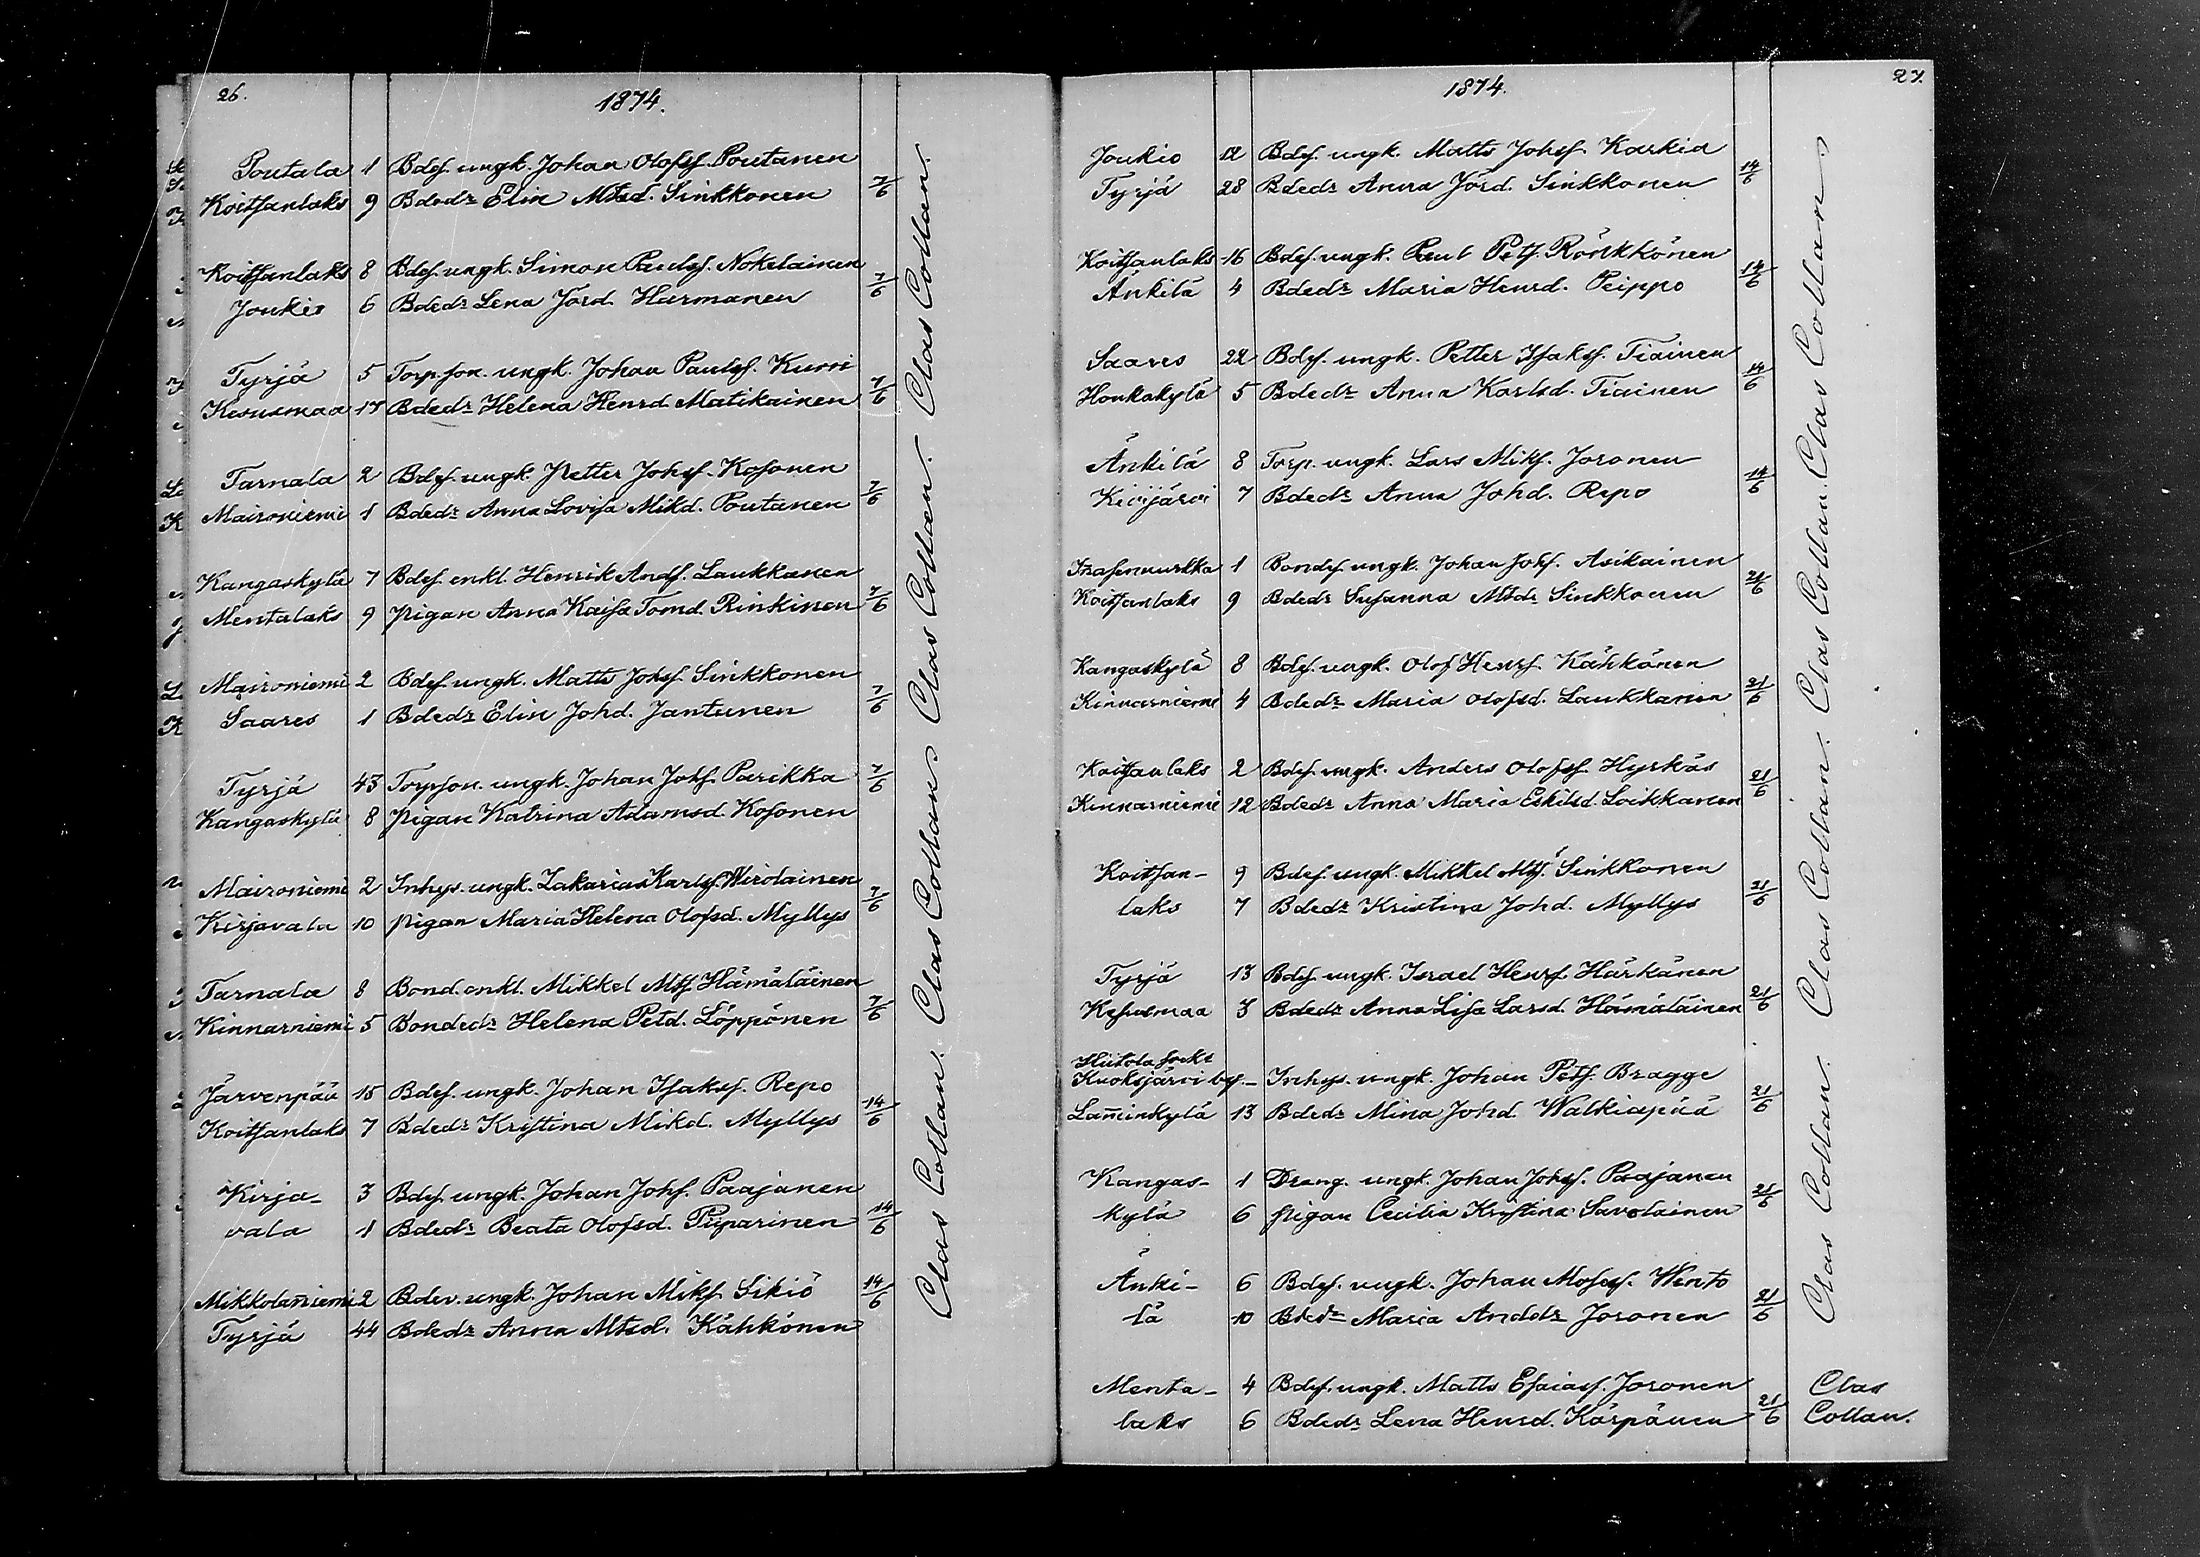 26.
1874.
Poutala 1 Bdes. ungk. Johan Olofss. Poutanen
Koitsanlaks 9 Bdedr Elin Mtsd. Sinkkonen 7/6
Koitsanlaks 8 Bdes. ungk. Simon Paulss. Nokelainen
Joukio 6 Bdedr Lena Jörd. Harmanen 7/6
Tyrjä 5 Torp.son. ungk. Johan Paulss. Kurri
Kesusmaa 17 Bdedr Helena Henrd. Matikainen 7/6
Tarnala 2 Bdes. ungk. Petter Johss. Kosonen
Maironiemi 1 Bdedr Anna Lovisa Mikd. Poutanen 7/6
Kangaskylä 7 Bdes. enkl. Henrik Ands. Laukkanen
Mentalaks 9 pigan Anna Kaisa Tomd. Rinkinen 7/6
Maironiemi 2 Bdes. ungk. Matts Johss. Sinkkonen
Saares 1 Bdedr Elin Johd. Jantunen 7/6
Tyrjä 43 Torpson. ungk. Johan Johs. Parikka 7/6
Kangaskylä 8 pigan Katrina Adamsd. Kosonen
Maironiemi 2 Inhys. ungk. Zakarias Karlss. Wirolainen
Kirjavala 10 pigan Maria Helena Olofsd. Myllys 7/6
Tarnala 8 Bond. enkl. Mikkel Mts. Hämäläinen
Kinnarniemi 5 Bondedr Helena Petd. Löppönen 7/6
Järvenpää 15 Bdes. ungk. Johan Isakss. Repo
Koitsanlaks 7 Bdedr Kristina Mikd. Myllys 14/6
Kirja- 3 Bdes. ungk. Johan Johs. Paajanen
vala 1 Bdedr Beata Olofsd. Piiparinen 14/6
Mikkolanniemi 2 Bdev. ungk. Johan Miks. Sikiö 14/6
Tyrjä 44 Bdedr Anna Mtsd. Kähkönen
Clas Collan. Clas Collan. Clas Collan. Clas Collan. Clas Collan.
27.
1874.
Joukio 12 Bdes. ungk. Matts Johss. Karkia
Tyrjä 28 Bdedr Anna Jörd. Sinkkonen 14/6
Koitsanlaks 16 Bdes. ungk. Paul Pets. Rönkkönen
Änkilä 4 Bdedr Maria Henrd. Peippo 14/6
Saares 22 Bdes. ungk. Petter Isakss. Tiainen
Honkakylä 5 Bdedr Anna Karlsd. Tiainen 14/6
Änkilä 8 Torp. ungk. Lars Miks. Joronen
Kivijärvi 7 Bdedr Anna Johd. Repo 14/6
1 Bondes. ungk. Johan Johs. Asikainen
Koitsanlaks 9 Bdedr Susanna Mtsdr Sinkkonen 21/6
Kangaskylä 8 Bdes. ungk. Olof Henrs. Kähkönen
Kinnarniemi 4 Bdedr Maria Olofsd. Laukkanen 21/6
Koitsanlaks 2 Bdes. ungk. Anders Olofss. Hyrkäs
Kinnarniemi 12 Bdedr Anna Maria Eskilsd. Loikkanen 21/6
Koitsan- 9 Bdes. ungk. Mikkel Mts. Sinkkonen
laks 7 Bdedr Kristina Johd. Myllys 21/6
Tyrjä 13 Bdes. ungk. Israel Henrs. Härkänen
Kesusmaa 3 Bdedr Anna Lisa Larsd. Hämäläinen 21/6
Hiitola sock.
Kuoksjärvi by. - Inhys. ungk. Johan Pets. Bragge
Laminkylä 13 Bdedr Mina Johd. Walkiapää 21/6
Kangas- 1 Dreng. ungk. Johan Johss. Paajanen
kylä 6 pigan Cecilia Kristina Savolainen 21/6
Änki- 6 Bdes. ungk. Johan Moses. Wento
lä 10 Bdedr Maria Anddr Joronen 21/6
Menta- 4 Bdes. ungk. Matts Esaiass. Joronen
laks 6 Bdedr Lena Henrd. Kärpänen 21/6
Clas Collan. Clas Collan. Clas Collan. Clas Collan. Clas Collan
Clas
Collan.